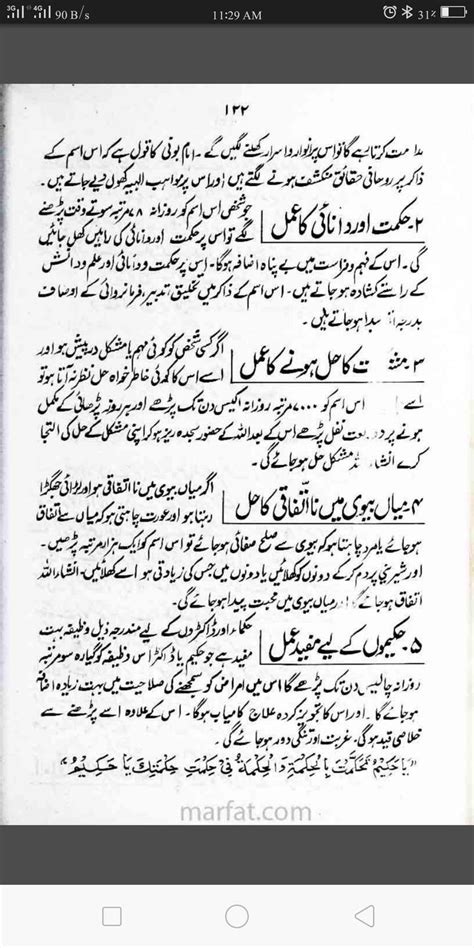 3G 4G 90 B/s 11:29 AM 31%
۱۲۲
مداومت کرتا رہے گا تو اس پر انوار و اسرار کھلنے لگیں گے۔ امام بونی کا قول ہے کہ اس اسم کے
ذاکر پر روحانی حقائق منکشف ہونے لگتے ہیں اور اس پر مواہب الٰہیہ کھول دیے جاتے ہیں۔
۲۔ حکمت اور دانائی کا عمل
جو شخص اس اسم کو روزانہ ۷۸ مرتبہ سوتے وقت پڑھنے
لگے تو اس پر حکمت اور دانائی کی راہیں کھل جائیں
گی۔ اس کے فہم و فراست میں بے پناہ اضافہ ہوگا۔ اس پر حکمت و دانائی اور علم و دانش
کے راستے کشادہ ہو جاتے ہیں۔ اس اسم کے ذاکر میں تخلیق، تدبیر، فرمانروائی کے اوصاف
بدرجہ پیدا ہو جاتے ہیں۔
۳۔ ت کا حل ہونے کا عمل
اگر کسی شخص کو کوئی مہم یا مشکل درپیش ہو اور
اسے اس کا کوئی خاطر خواہ حل نظر نہ آتا ہو تو
اسے اس اسم کو ۷۰۰۰ مرتبہ روزانہ اکیس دن تک پڑھے اور ہر روز پڑھائی کے مکمل
ہونے پر دو نفل پڑھے اس کے بعد اللہ کے حضور سجدہ ریز ہو کر اپنی مشکل کے حل کی التجا
کرے انشاء اللہ مشکل حل ہو جائے گی۔
۴۔ میاں بیوی میں نا اتفاقی کا حل
اگر میاں بیوی میں نا اتفاقی ہو اور لڑائی جھگڑا
رہتا ہو اور عورت چاہتی ہو کہ میاں سے اتفاق
ہو جائے یا مرد چاہتا ہو کہ بیوی سے صلح صفائی ہو جائے تو اس اسم کو ایک ہزار مرتبہ پڑھیں۔
اور شیرینی پر دم کر کے دونوں کو کھلائیں یا دونوں میں جس کی زیادتی ہو اسے کھلائیں۔ انشاء اللہ
اتفاق ہو جائے گا اور میاں بیوی میں محبت پیدا ہو جائے گی۔
۵۔ حکیموں کے لیے مفید عمل
حکماء اور ڈاکٹروں کے لیے مندرجہ ذیل وظیفہ بہت
مفید ہے جو حکیم یا ڈاکٹر اس وظیفہ کو گیارہ سو مرتبہ
روزانہ چالیس دن تک پڑھے گا اس میں امراض کو سمجھنے کی صلاحیت میں بہت زیادہ اضافہ
ہو جائے گا۔ اور اس کا تجویز کردہ علاج کامیاب ہوگا۔ اس کے علاوہ اسے پڑھنے سے
خلاصی قید ہوگی۔ غربت اور تنگی دور ہو جائے گی۔
"یَا حَکِیْمُ تَحَکَّمْتَ بِالْحِکْمَةِ وَالْحِکْمَةُ فِیْ حِکْمَتِ حِکْمَتِكَ یَا حَکِیْمُ"
marfat.com